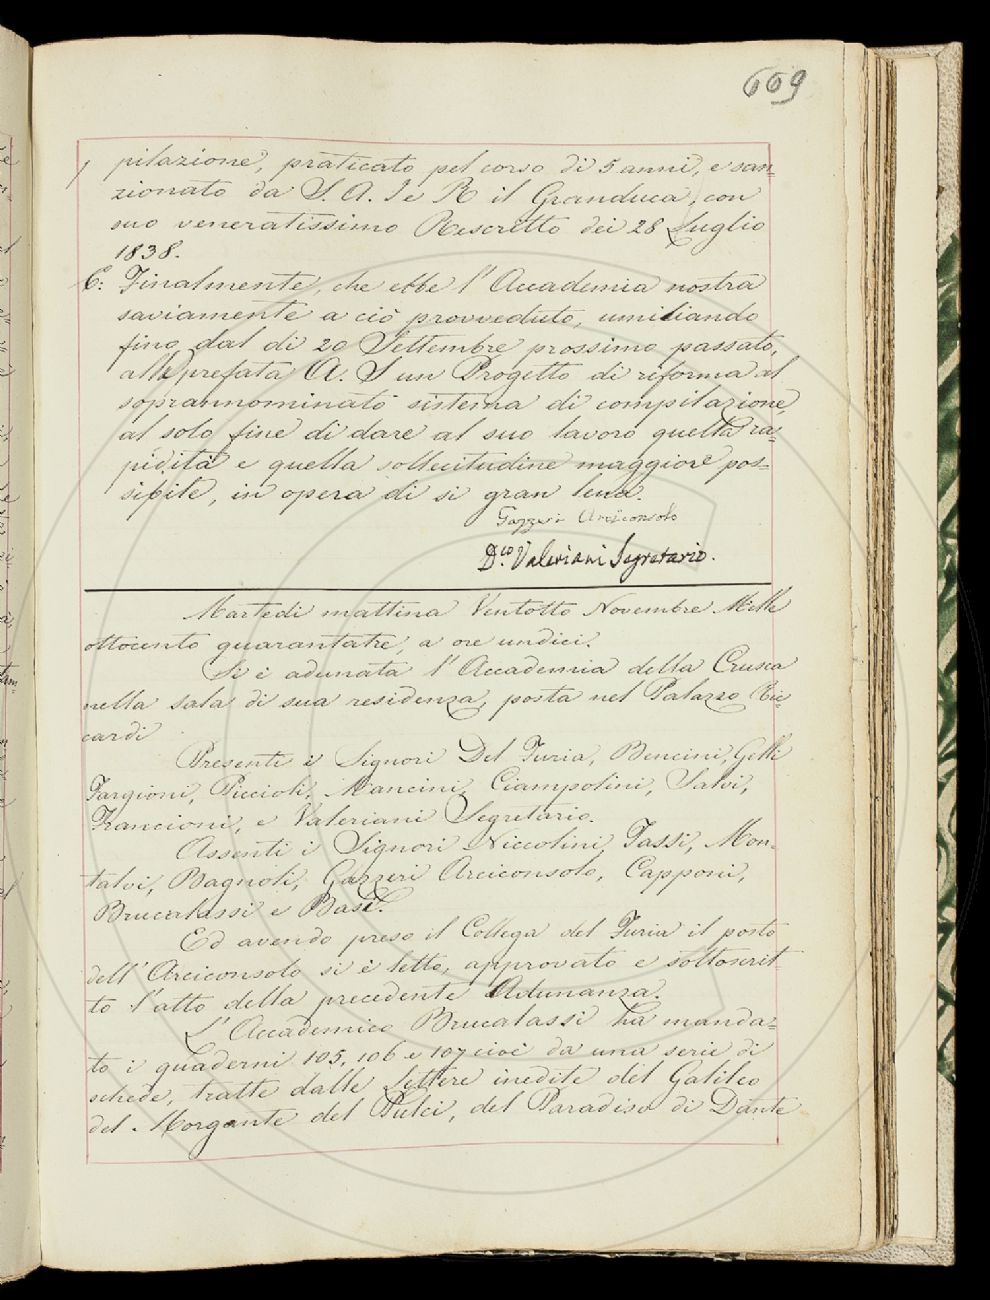 669
pilazione, praticato pel corso di 5 anni, e san=
zionato da S. A. I e R il Granduca, con
suo veneratissimo Rescritto dei 28 Luglio
1838.
6: Finalmente, che ebbe l'Accademia nostra
saviamente a ciò provveduto, umiliando
fino dal di 20 Settembre prossimo passato,
alla prefata A. S un Progetto di riforma al
soprannominato sistema di compilazione,
al solo fine di dare al suo lavoro quella ra=
pidità e quella sollecitudine maggiore pos=
sibile, in opera di si gran lena.
Gazzeri Arciconsolo
D.co Valeriani Segretario.
Martedi mattina Ventotto Novembre Mille
ottocento quarantatre, a ore undici.
Si è adunata l'Accademia della Crusca
nella sala di sua residenza, posta nel Palazzo Ric=
cardi
Presenti i Signori Del Furia, Bencini, Gelli
Targioni, Piccioli, Mancini, Ciampolini, Salvi,
Francioni, e Valeriani Segretario.
Assenti i Signori Niccolini, Tassi, Mon=
talvi, Bagnoli, Gazzeri Arciconsolo, Capponi,
Brucalassi e Basi.
Ed avendo preso il Collega del Furia il posto
dell'Arciconsolo si è letto, approvato e sottoscrit=
to l'atto della precedente Adunanza.
L'Accademico Brucalassi ha manda=
to i quaderni 105, 106 e 107 cioè da una serie di
schede, tratte dalle Lettere inedite del Galileo
del Morgante del Pulci, del Paradiso di Dante